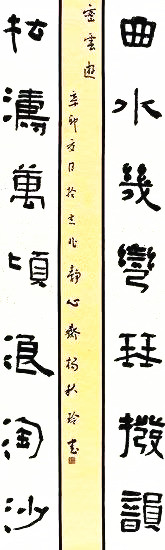 曲水幾彎琴撥韻
密雲遊
辛卯方日於京北靜心齋楊秋玲書
松濤萬頃浪淘沙